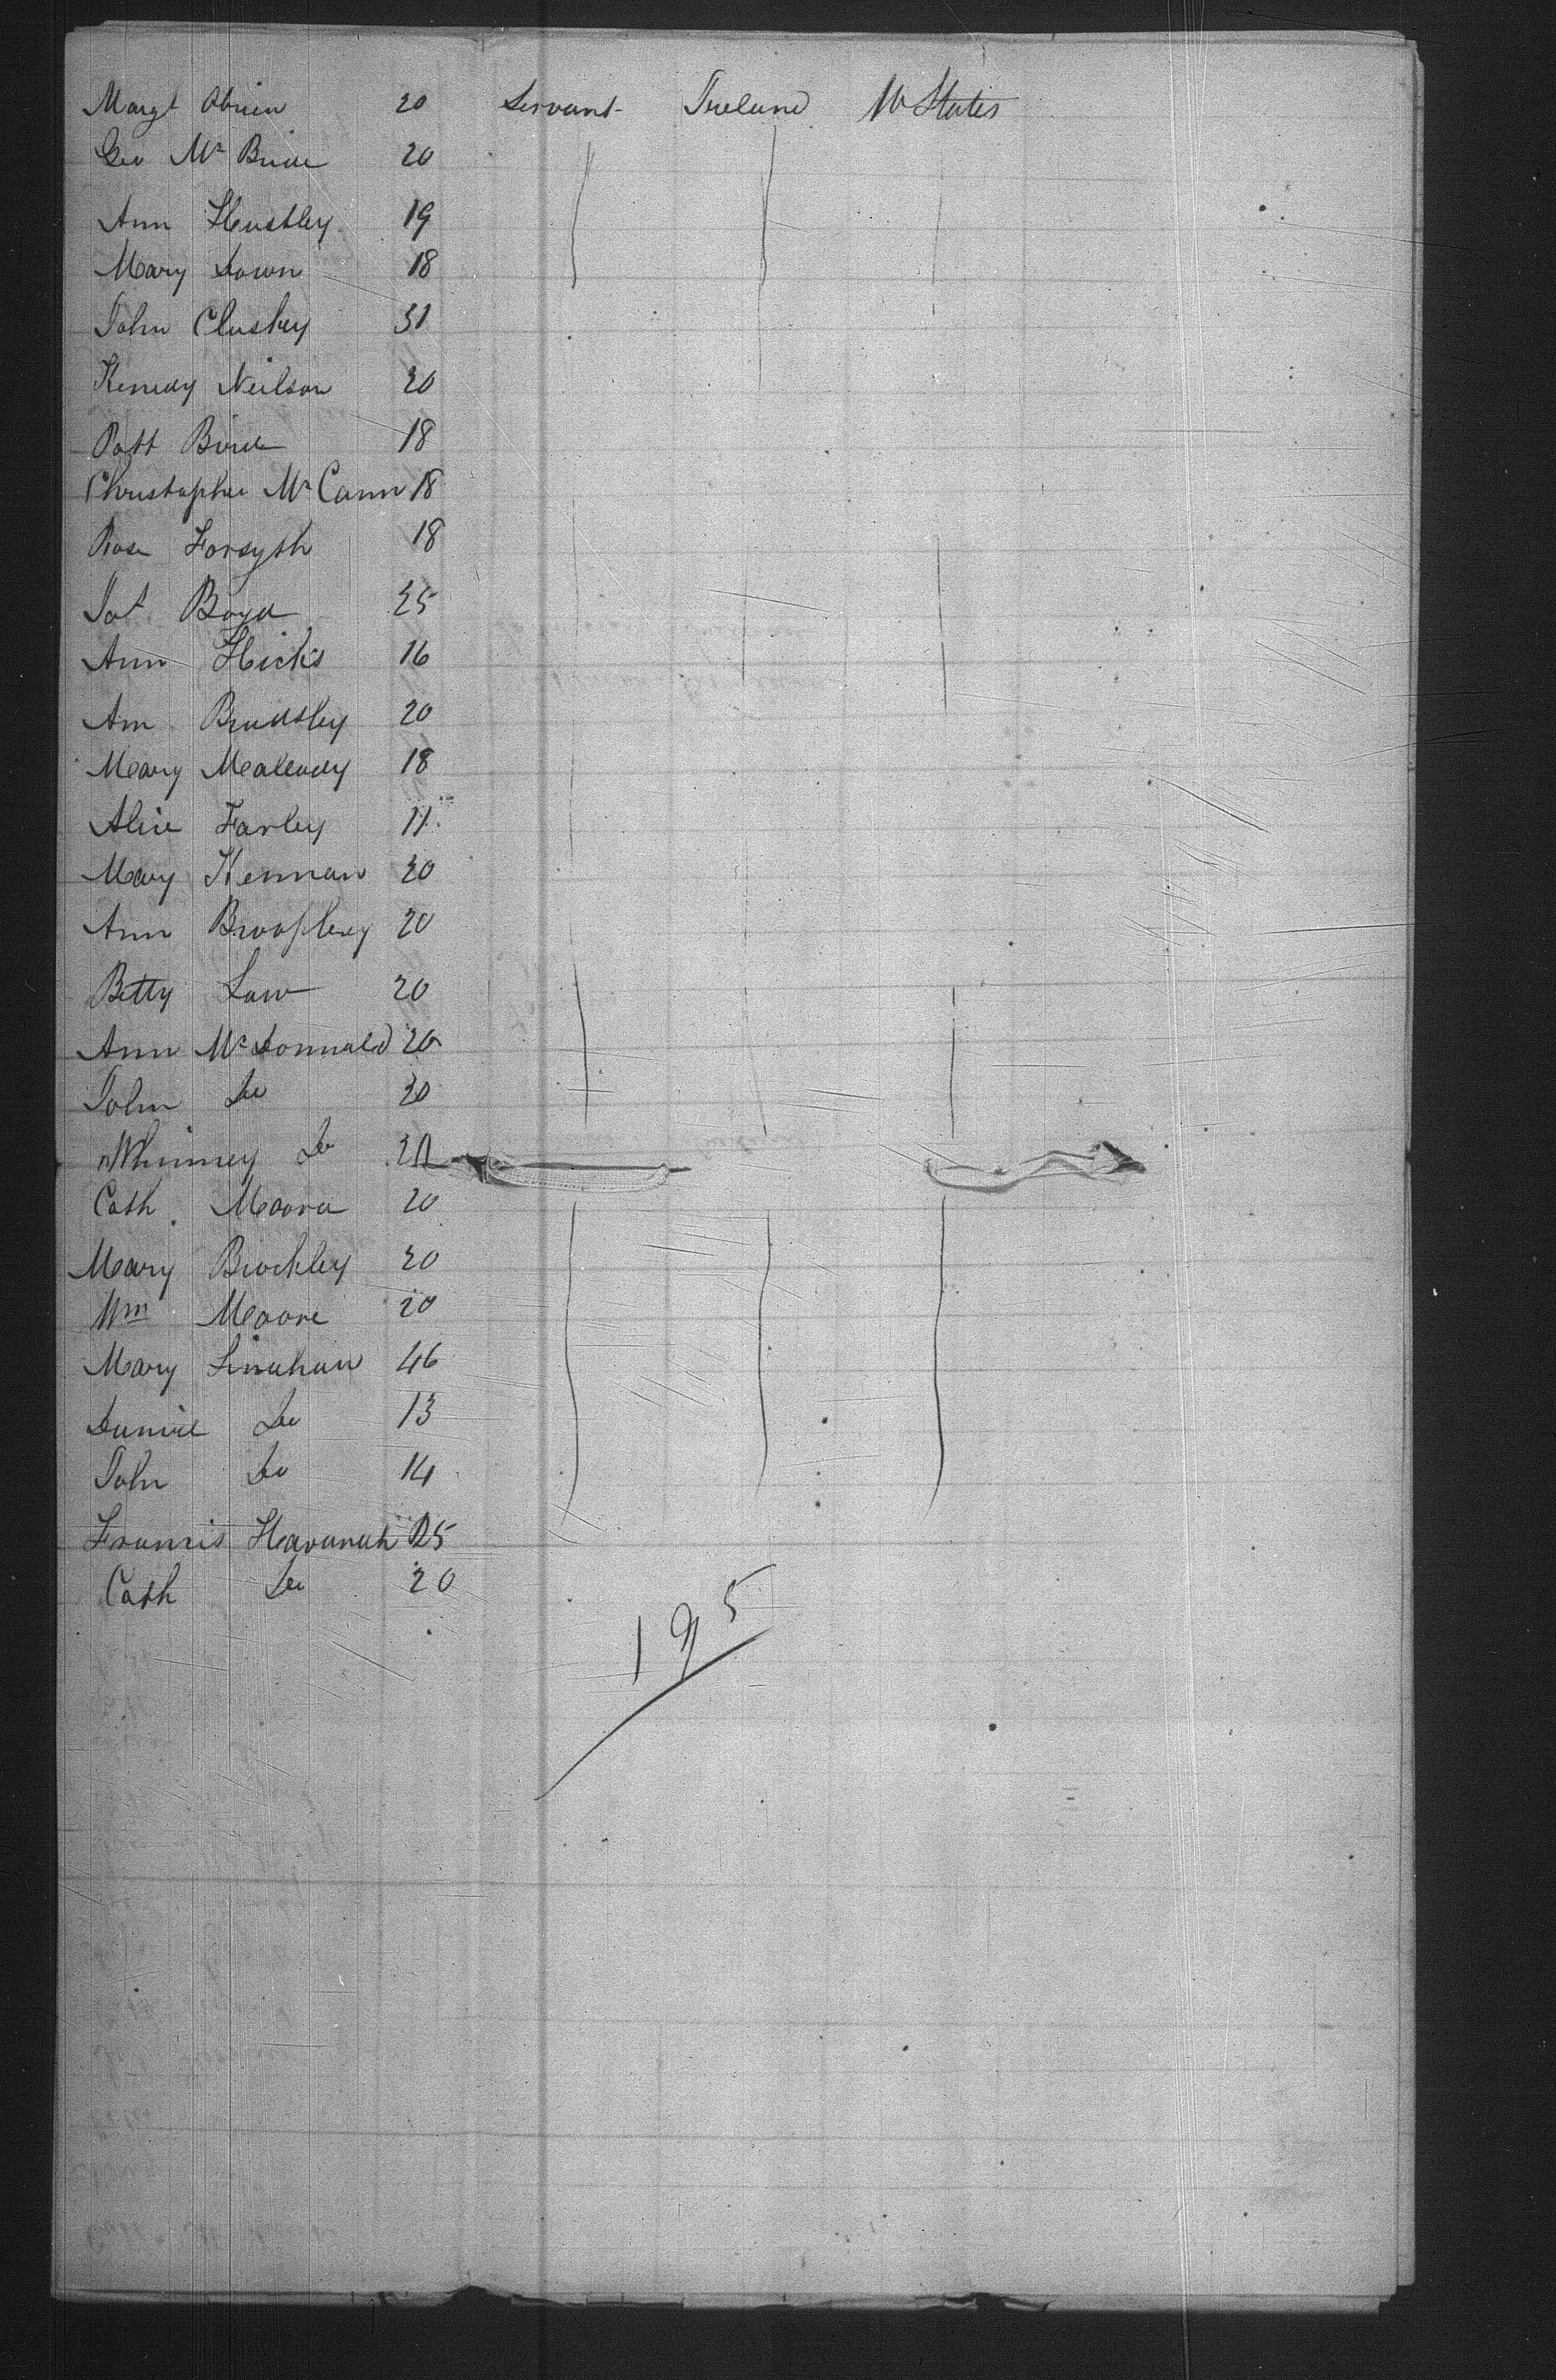 Margt Obrien 20 Servant Ireland U States
Geo Mc Bride 20
Ann Hustley 19
Mary Down 18
John Cluskey 31
Kenedy Neilson 20
Patt Bird 18
Christopher Mc Cann 18
Rose Forsyth 18
Pat Boyd 25
Ann Hicks 16
Ann Bradsley 20
Mary Malendy 18
Alice Farley 11
Mary Kennan 20
Ann Broofley 20
Betty Law 20
Ann Mc Donnald 20
John Do 20
Whinney Do 20
Cath Moore 20
Mary Brockley 20
Wm Moore 20
Mary Linahan 46
Daniel Do 13
John Do 14
Francis Havanah 25
Cath Do 20
195